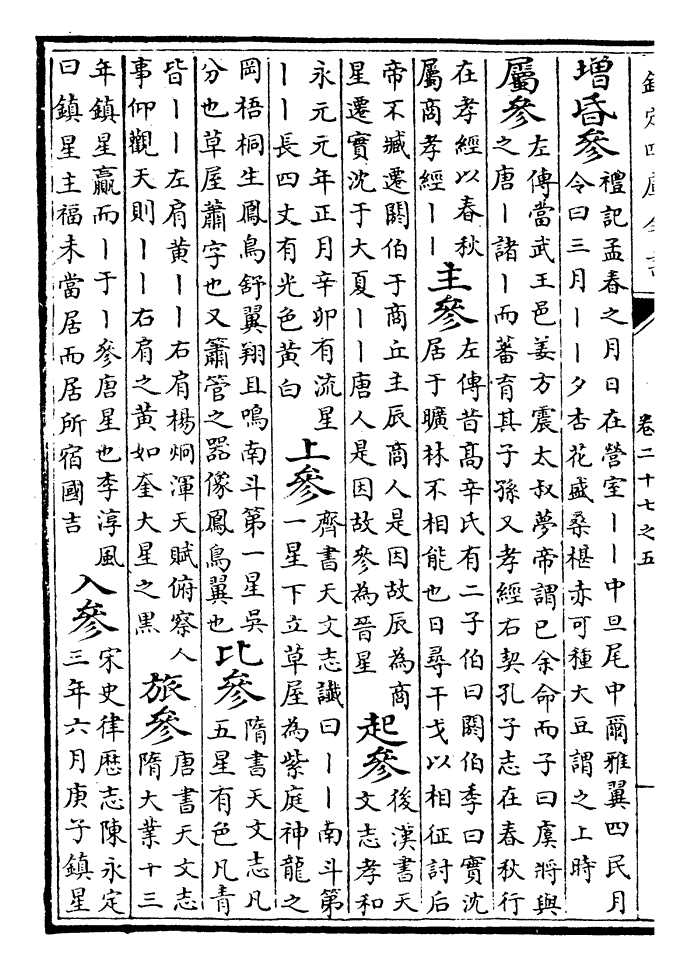 欽定四庫全書
卷二十七之五
增昏參
禮記孟春之月日在營室丨丨中旦尾中爾雅翼四民月
令曰三月丨丨夕杏花盛桑椹赤可種大豆謂之上時
屬參
左傳當武王邑姜方震太叔夢帝謂已余命而子曰虞將與
之唐丨諸丨而蕃育其子孫又孝經右契孔子志在春秋行
在孝經以春秋
屬商孝經丨丨
主參
左傳昔髙辛氏有二子伯曰閼伯季曰實沈
居于曠林不相能也日尋干戈以相征討后
帝不臧遷閼伯于商丘主辰商人是因故辰為商
星遷實沈于大夏丨丨唐人是因故參為晉星
起參
後漢書天
文志孝和
永元元年正月辛卯有流星
丨丨長四丈有光色黃白
上參
齊書天文志讖曰丨丨南斗第
一星下立草屋為紫庭神龍之
岡梧桐生鳳鳥舒翼翔且鳴南斗第一星吳
分也草屋蕭字也又簫管之器像鳳鳥翼也
比參
隋書天文志凡
五星有色凡青
皆丨丨左肩黃丨丨右肩楊炯渾天賦俯察人
事仰觀天則丨丨右肩之黃如奎大星之黑
旅參
唐書天文志
隋大業十三
年鎮星贏而丨于丨參唐星也李淳風
曰鎮星主福未當居而居所宿國吉
入參
宋史律歷志陳永定
三年六月庚子鎮星